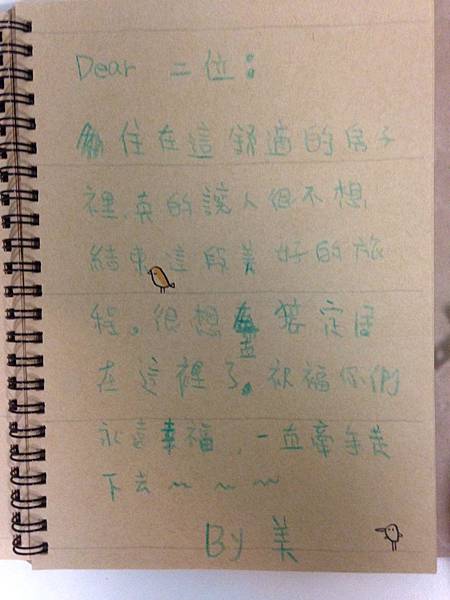 Dear 二位:
住在這舒適的房子
裡,真的讓人很不想
結束這段美好的旅
程。很想直接定居
在這裡了。祝福你們
永遠幸福,一直牽手走
下去~~~
By 美